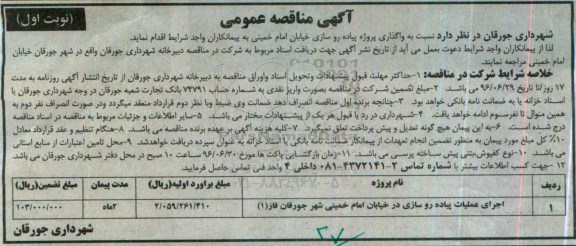 آگهی مناقصه عمومی
(نوبت اول)
شهرداری جورقان در نظر دارد نسبت به واگذاری پروژه پیاده رو سازی خیابان امام خمینی به پیمانکاران واجد شرایط اقدام نماید.
لذا از پیمانکاران واجد شرایط دعوت بعمل می آید از تاریخ نشر آگهی جهت دریافت اسناد مربوط به شرکت در مناقصه دبیرخانه شهرداری جورقان واقع در شهر جورقان خیابان
امام خمینی مراجعه نمایند.
خلاصه شرایط شرکت در مناقصه: ۱-حداکثر مهلت قبول پیشنهادات وتحویل اسناد واوراق مناقصه به دبیرخانه شهرداری جورقان از تاریخ انتشار آگهی روزنامه به مدت
۱۷ روز/تا تاریخ ۹۶/۰۶/۲۹ می باشد. ۲-مبلغ تضمین شرکت در مناقصه بصورت واریز نقدی به شماره حساب ۷۴۷۹۱ بانک تجارت شعبه جورقان در وجه شهرداری جورقان یا
اسناد خزانه یا به ضمانت نامه بانکی خواهد بود. ۳-چنانچه برنده اول مناقصه انصراف دهد ضمانت وی ضبط وبا نظر دوم قرارداد منعقد میگردد ودر صورت انصراف نفر دوم به
همین منوال تا نفرسوم ادامه خواهد یافت. ۴-شهرداری در رد یا قبول هر یک از پیشنهادات مختار می باشد. ۵-سایر اطلاعات و جزئیات مربوط به مناقصه در اسناد مناقصه
درج شده است. ۶-به این پیمان هیچ گونه تعدیل و پیش پرداخت تعلق نمیگیرد. ۷-کلیه هزینه آگهی بر عهده برنده مناقصه می باشد. ۸-هنگام تنظیم و عقد قرارداد معادل
۱۰٪ کل مبلغ مورد پیمان به منظور تضمین انجام تعهدات از پیمانکار ضمانت نامه بانکی یا اسناد خزانه به عنوان سپرده دریافت خواهدشد. ۹-محل تامین اعتبارات از منابع استانی
می باشد. ۱۰-نوع کفپوش،بتنی پیش ساخته پرسی می باشد. ۱۱-زمان بازگشایی پاکت ها مورخ ۹۶/۰۶/۳۰ ساعت ۱۰ صبح در محل دفتر شهرداری جورقان می باشد.
۱۲-جهت کسب اطلاعات بیشتر با شماره تماس ۲-۰۸۱-۴۳۷۲۱۴۱ داخلی ۴ واحد فنی تماس حاصل فرمایید.
ردیف نام پروژه مبلغ براورد اولیه(ریال) مدت پیمان مبلغ تضمین(ریال)
۱ اجرای عملیات پیاده رو سازی در خیابان امام خمینی شهر جورقان فاز(۱) ۲/۰۵۹/۲۶۱/۴۱۰ ۲ماه ۱۰۳/۰۰۰/۰۰۰
شهرداری جورقان